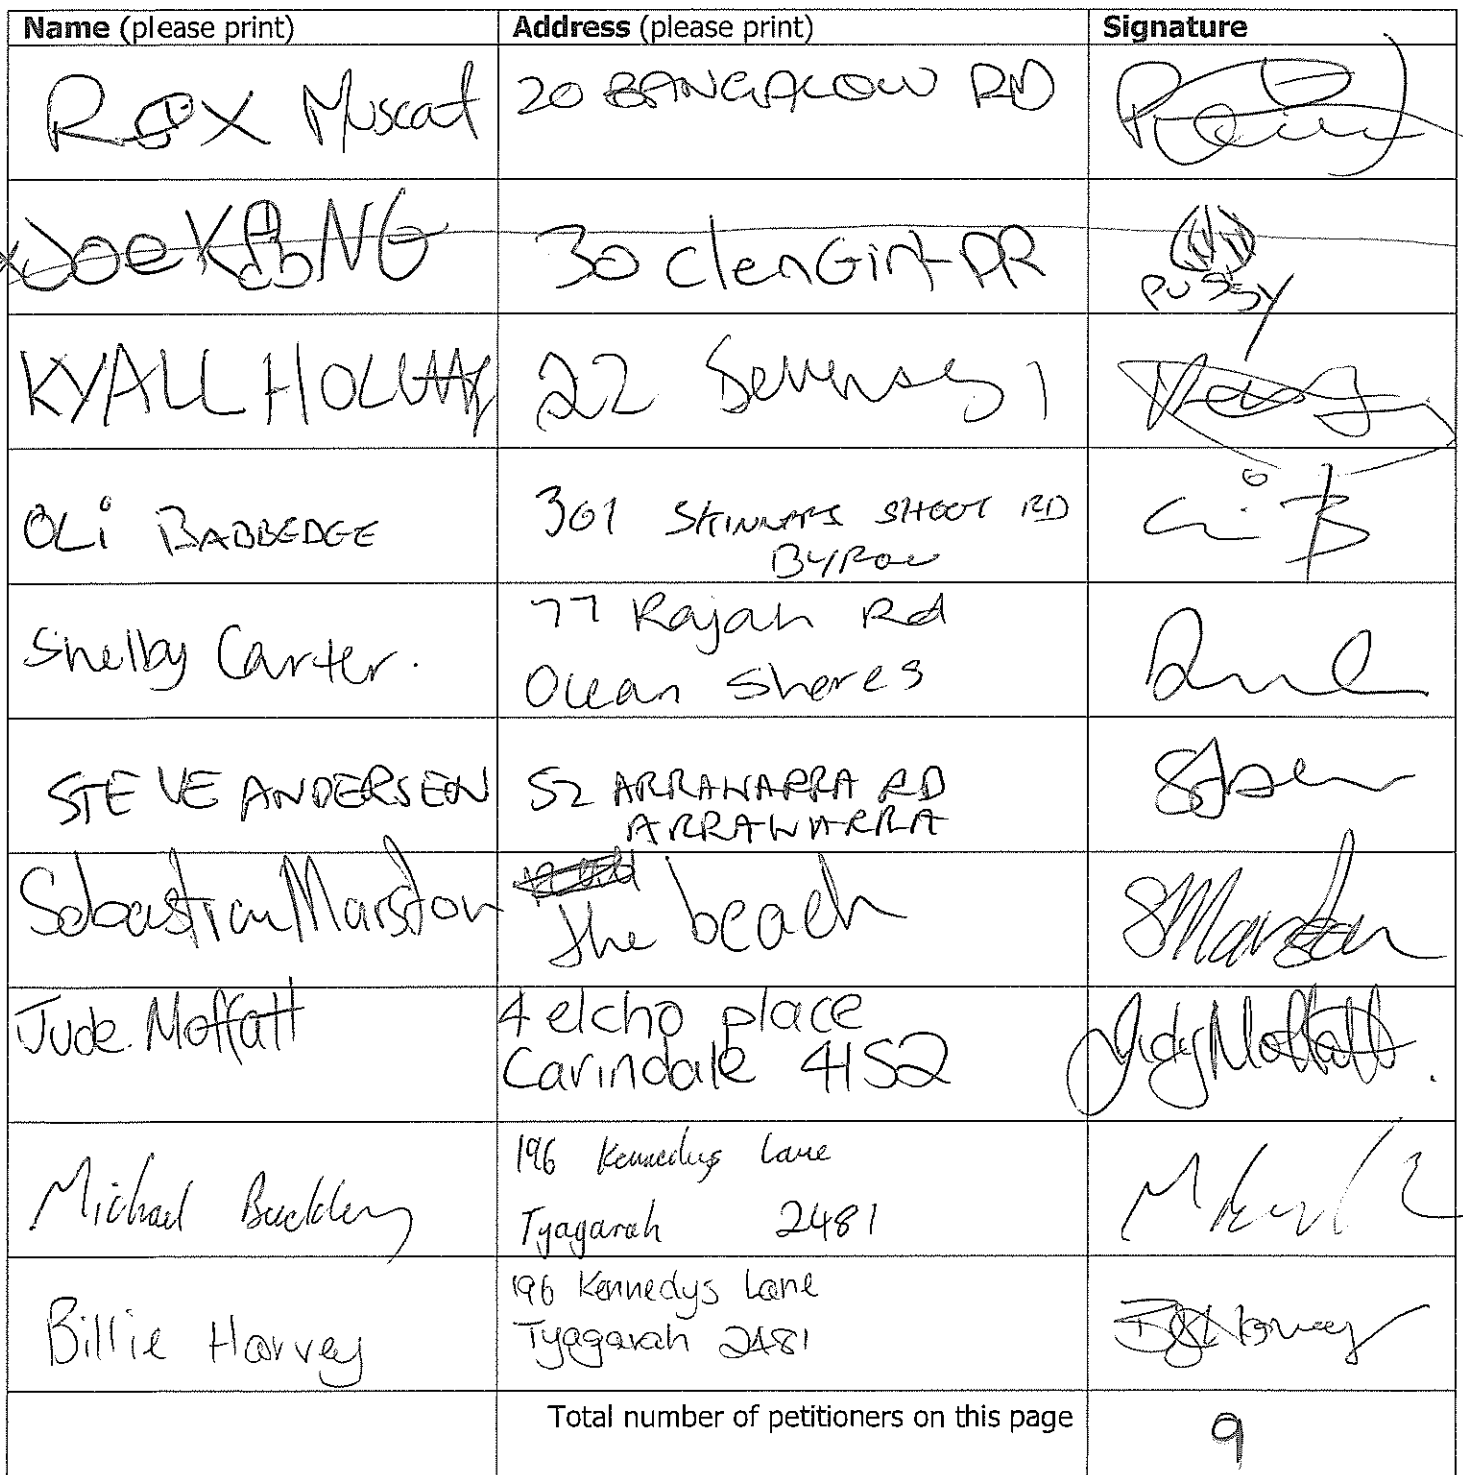 Name (please print) Address (please print) Signature
Rox Muscat 20 BANGALOW RD
Joe KONG 30 clenGirt DR
PUSSY
KYALL 22
OLi BABBEDGE 301 SKINNERS SHOOT RD
BYRON
Shelby Carter. 77 Rajah Rd
Ocean Shores
STEVE ANDERSEN 52 ARRAWARRA RD
ARRAWARRA
Sebastian Marston the beach SMarston
Jude Moffatt 4 elcho place
Carindale 4152 Judy Moffatt.
Michael Buckley 196 Kennedys Lane
Tyagarah 2481
Billie Harvey 196 Kennedys Lane
Tyagarah 2481
Total number of petitioners on this page 9